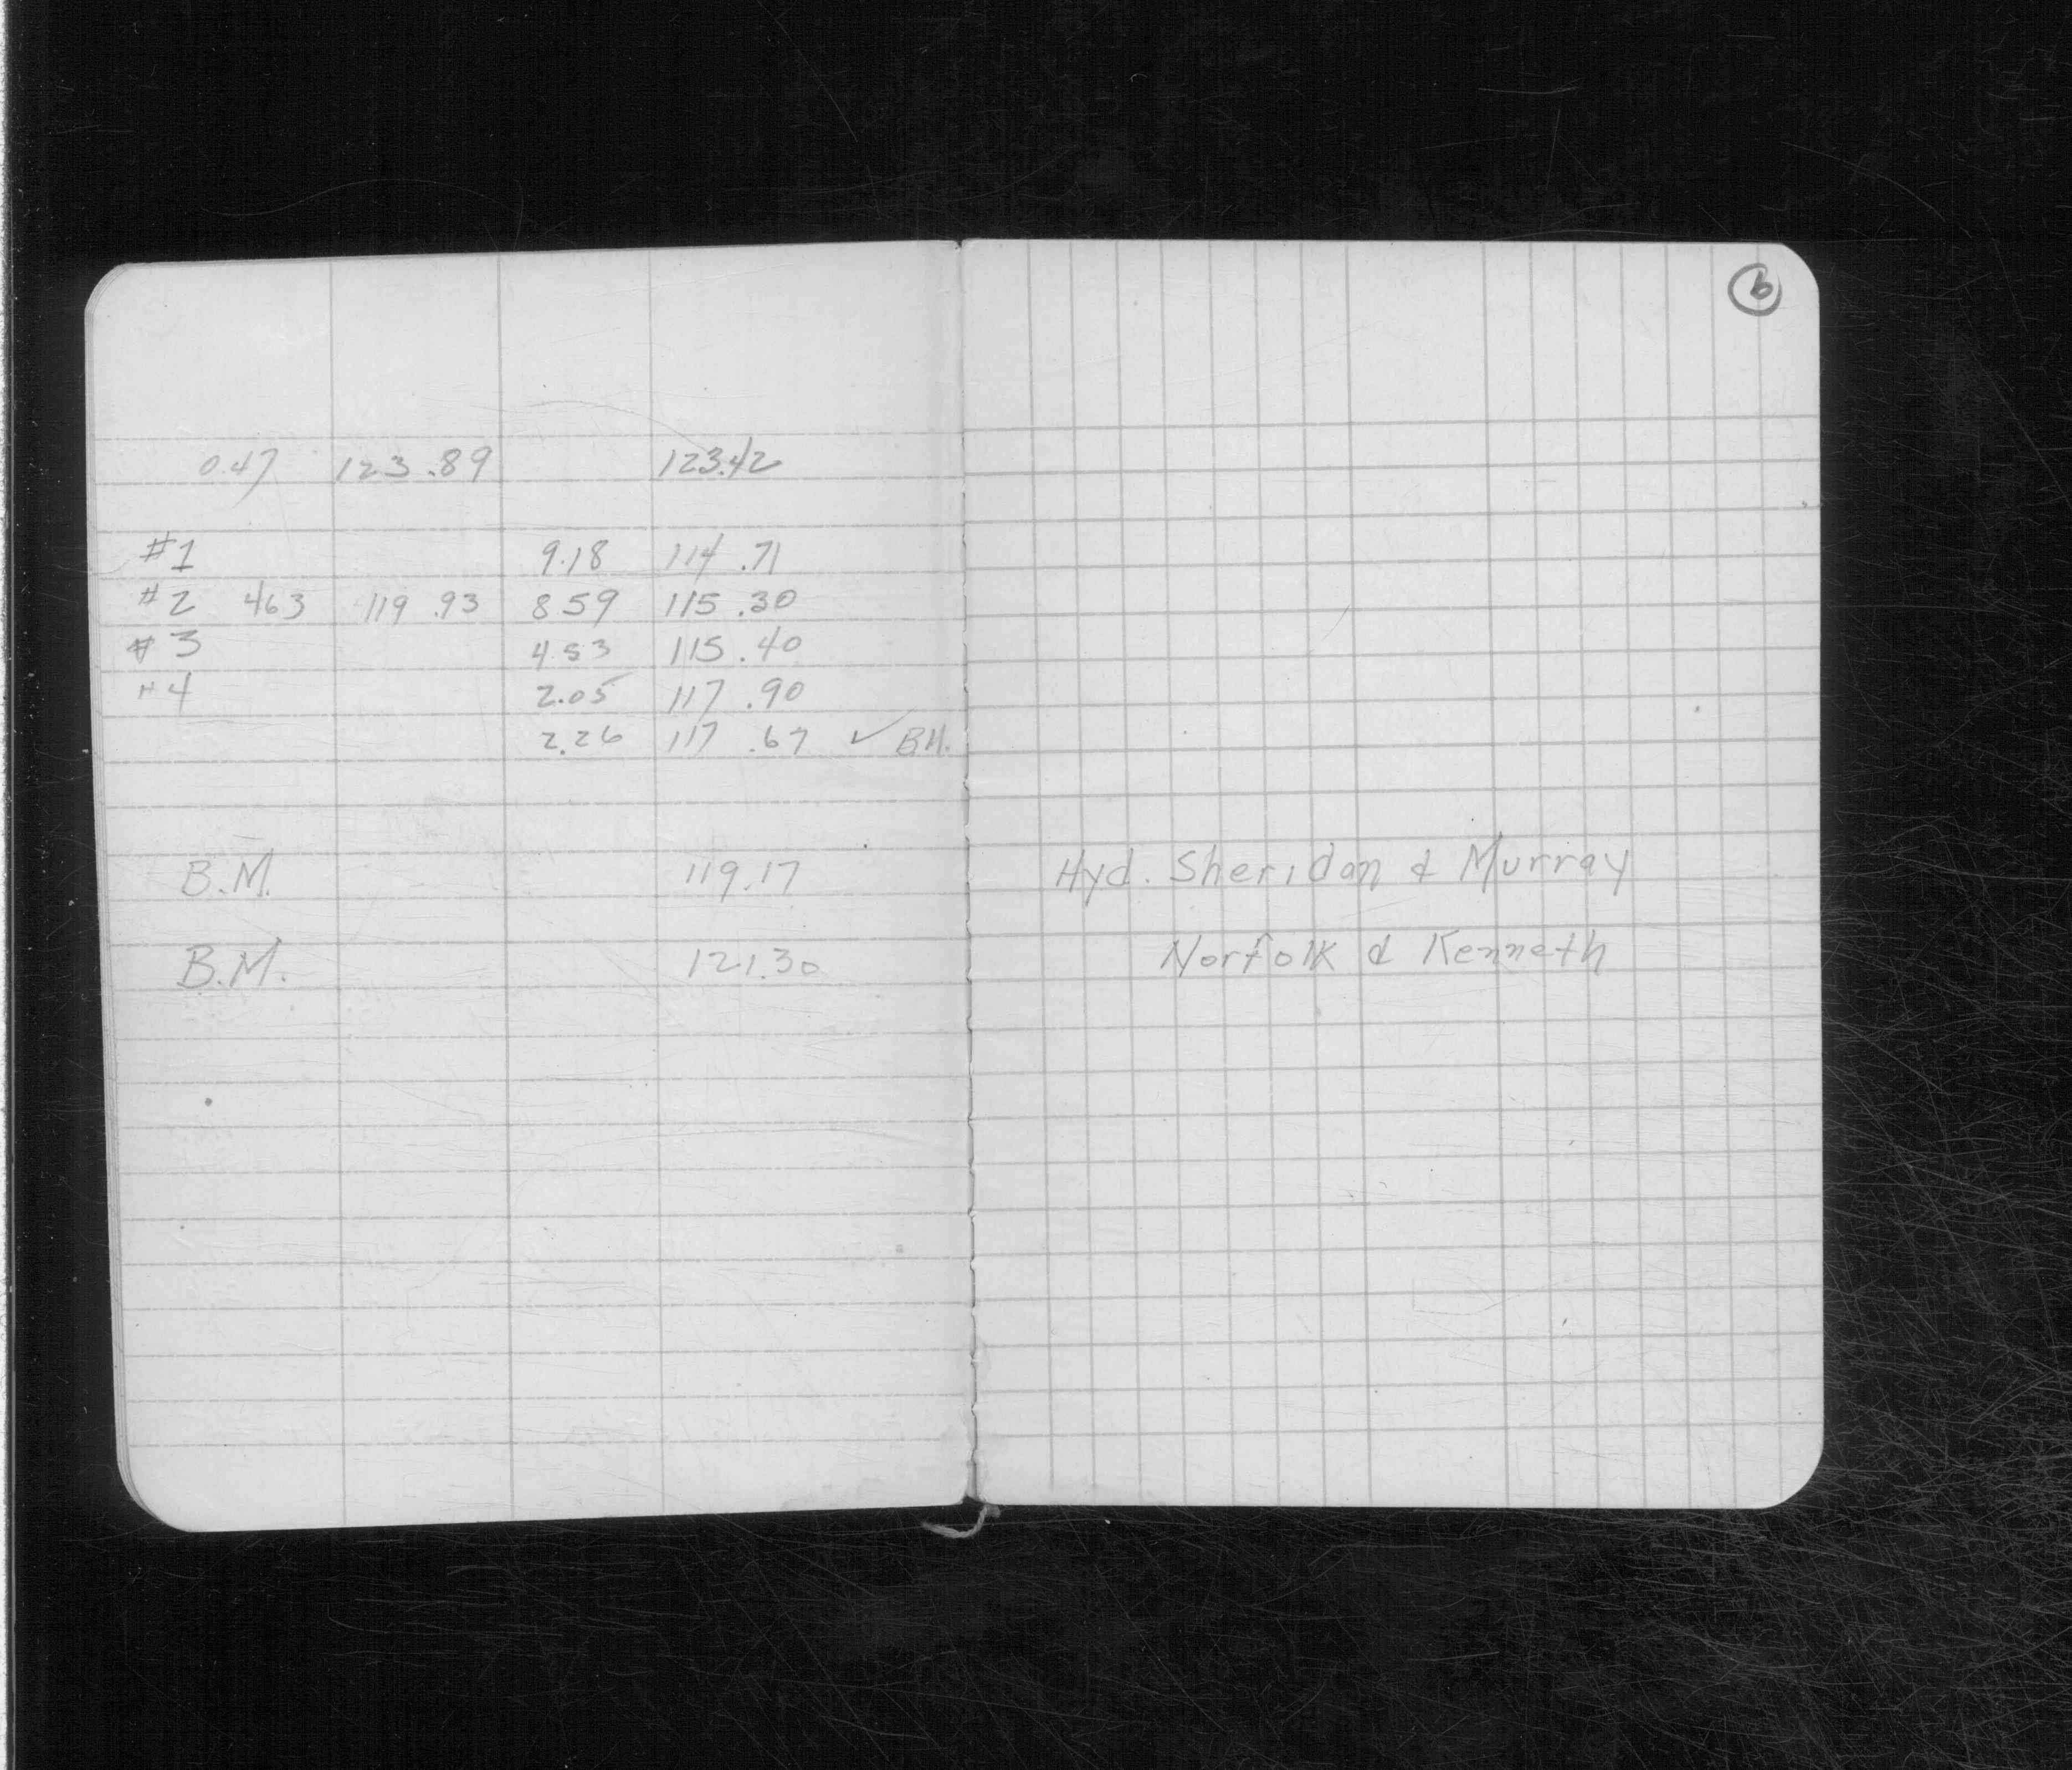 6
0.47 123.89 123.42
#1 9.18 114.71
#2 463 119.93 859 115.30
#3 4.53 115.40
#4 2.05 117.90
2.26 117.67 ✓ BM.
B.M. 119.17 Hyd. Sheridan & Murray
B.M. 121.30 Norfolk & Kenneth